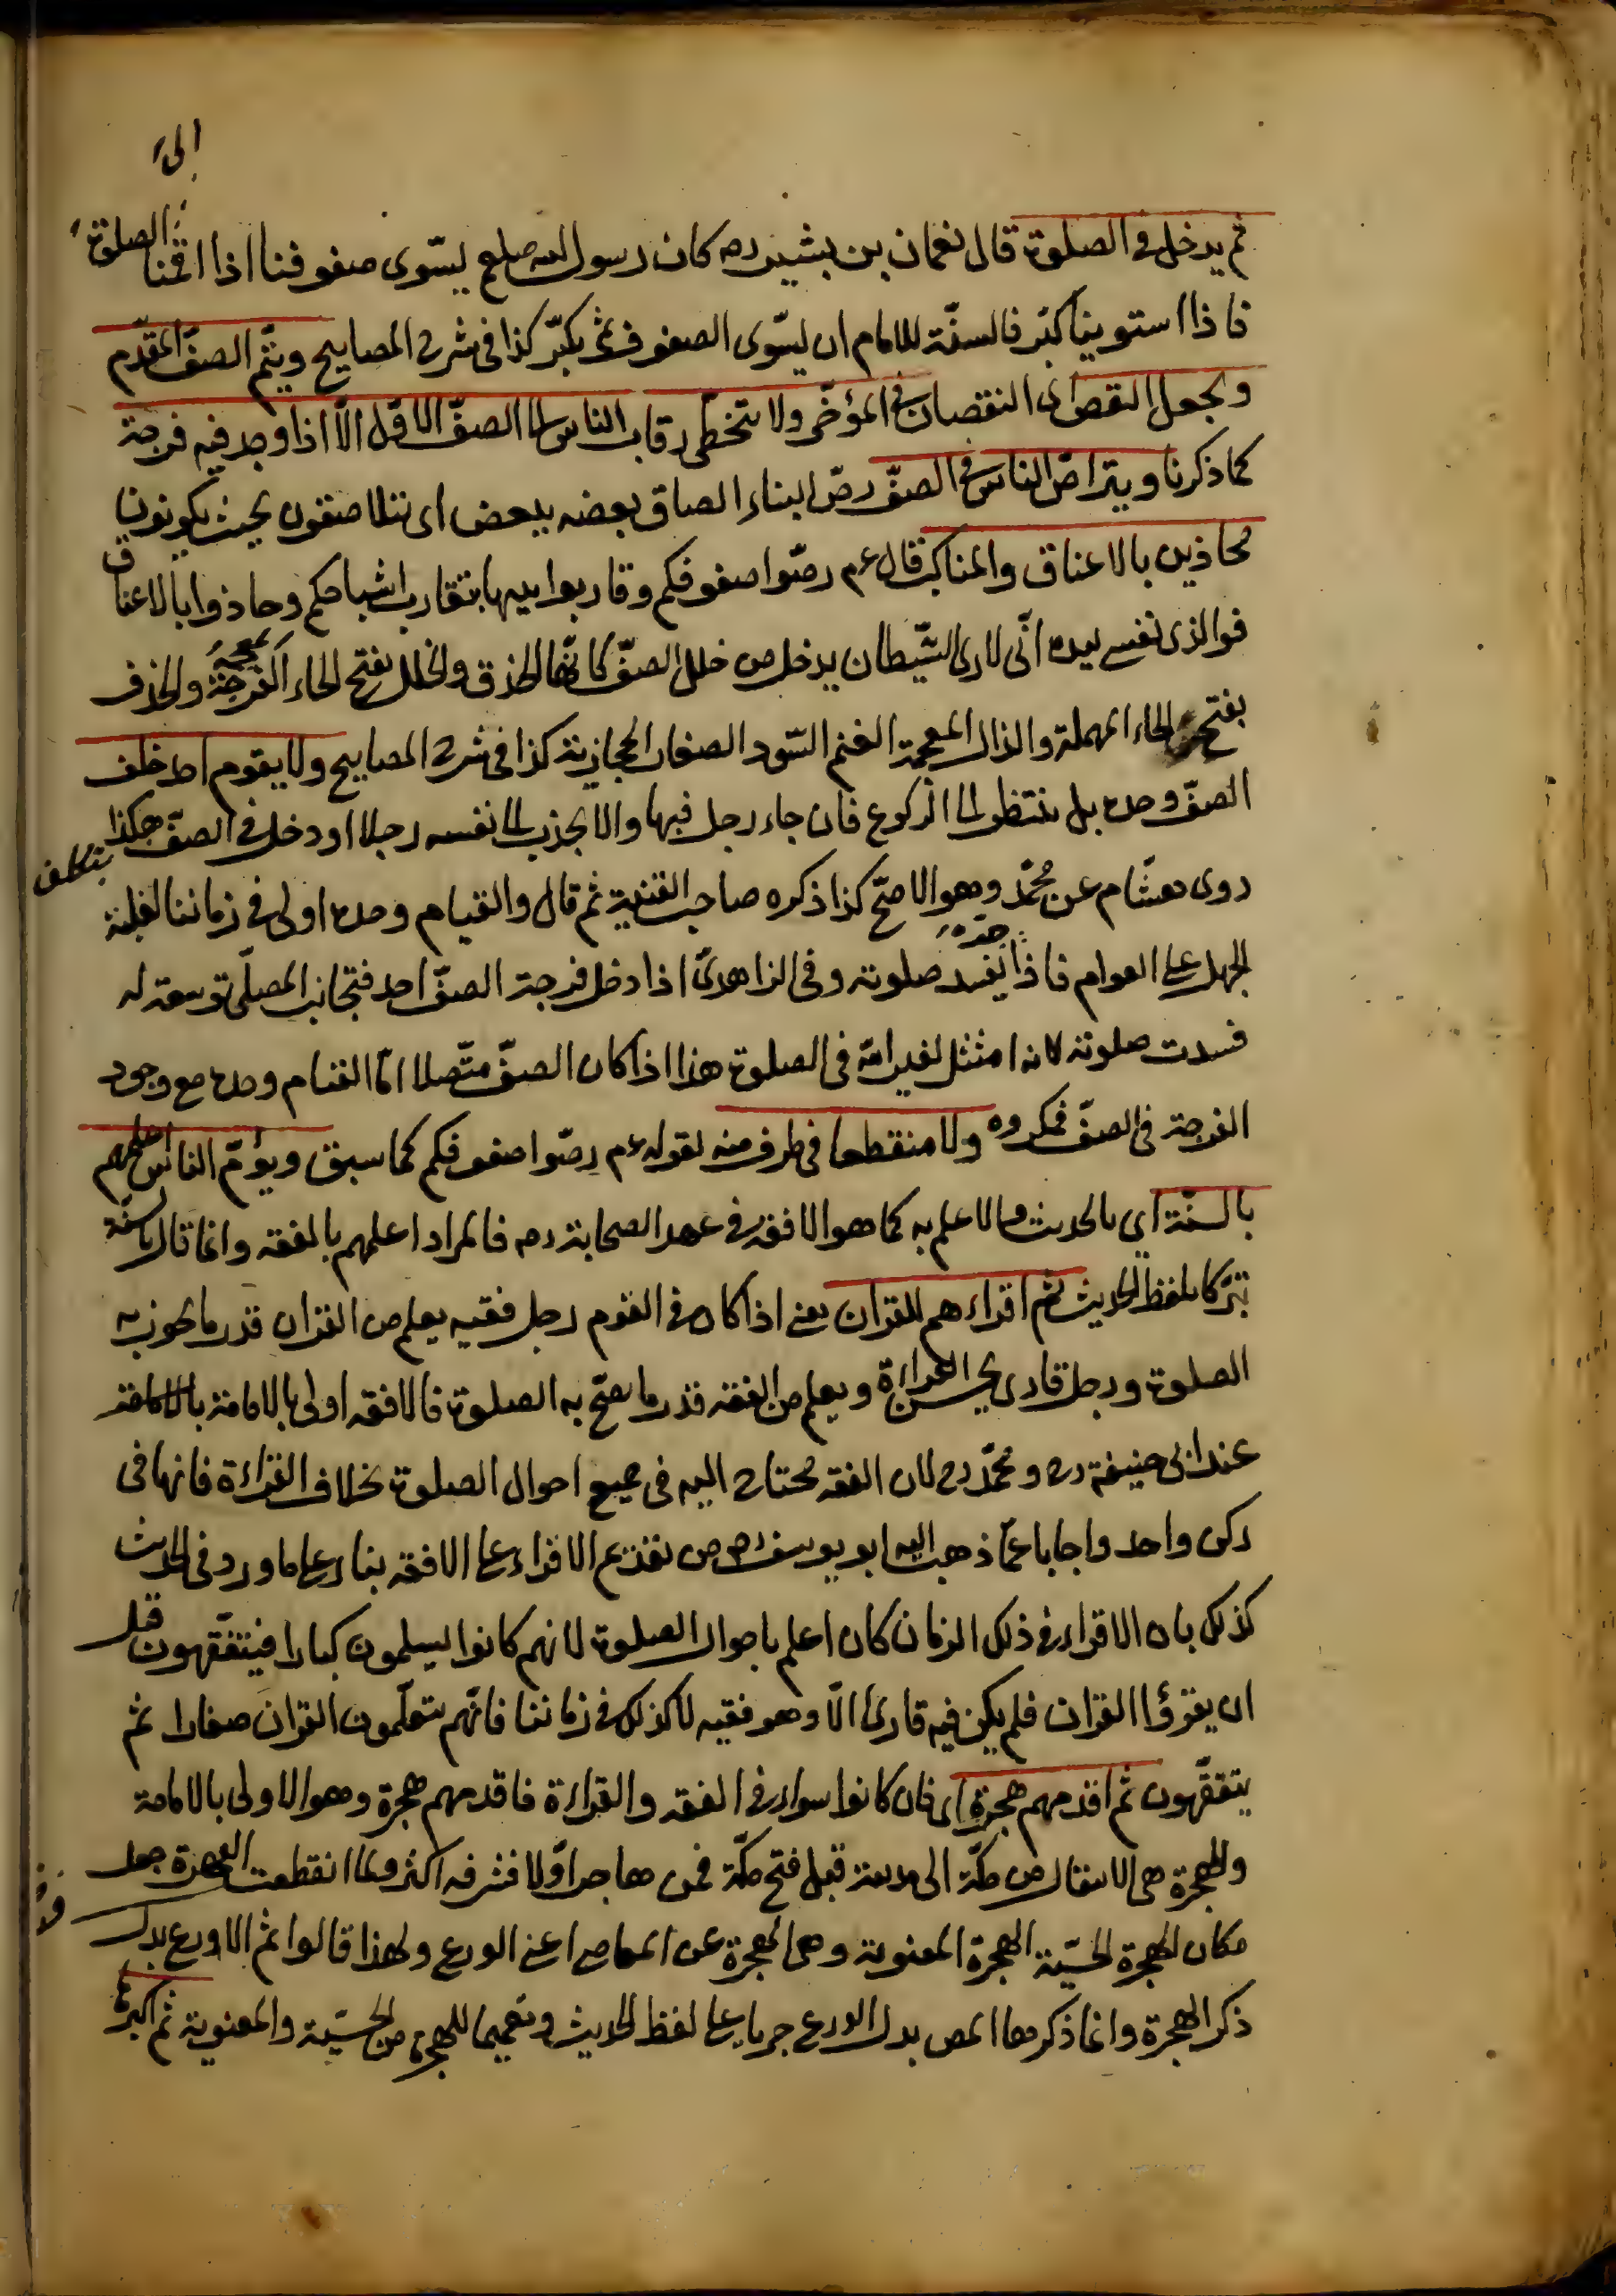 الى
ثم يدخل فى الصلوة قال نعمان بن بشير رضه كان رسول الله صلعم يسّوى صفوفنا اذا اقمنا الصلوة
فاذا استوينا كبّر فالسنّة للامام ان يسّوى الصفوف ثم يكبّر كذا فى شرح المصابيح ويتمّ الصفّ المقدّم
ويجعل النقص اى النقصان فى المؤخّر ولا يتخطّى رقاب الناس الى الصفّ الاوّل الّا اذا وجد فيه فرجة
كما ذكرنا ويتراصّ الناس فى الصفّ رصّ البناء الصاق بعضه ببعض اى يتلاصقون بحيث يكونون
محاذين بالاعناق والمناكب قال عم رصّوا صفوفكم وقاربوا بينها بتقارب اشباحكم وحاذوا بالاعناق
فوالذى نفسى بيده انّى لارى الشّيطان يدخل من خلل الصفّ كانّها الحذق والخلل بفتح الخاء المعجمة الفرجة والحذف
بفتح الحاء المهملة والذال المعجمة الغنم السّود الصغار الحجازية كذا فى شرح المصابيح ولا يقوم احد خلف
الصفّ وحده بل ينتظر الى الركوع فان جاء رجل فبها والا يجذب الى نفسه رجلا او دخل فى الصفّ هكذا
بتكلف
روى هشام عن محمّد وهو الاصحّ كذا ذكره صاحب القنية ثم قال والقيام وحده اولى فى زماننا لغلبة
الجهل على العوام فاذا جرّه يفسد صلوته وفى الزاهدىّ اذا دخل فرجة الصفّ احد فتجانب المصلّى توسعة له
فسدت صلوته لانه امتثل لغير امر فى الصلوة هذا اذا كان الصفّ متّصلا امّا القيام وحده مع وجود
الفرجة فى الصفّ فمكروه ولا منقطعا فى طرف منه لقوله عم رصّوا صفوفكم كما سبق ويؤمّ الناس اعلمهم
بالسنّة اى بالحديث والاعلم به كما هو الافقه فى عهد الصحابة رضه فالمراد اعلمهم بالفقه وانما قال بالسنّة
تبرّكا بلفظ الحديث ثم اقراءهم للقران يعنى اذا كان فى القوم رجل فقيه يعلم من القران قدر ما يجوز به
الصلوة ورجل قارى يحسن القراءة ويعلم من الفقه قدر ما يصحّ به الصلوة فالافقه اولى بالامامة
عند ابى حنيفة رح ومحمّد رح لان الفقه محتاج اليه فى جميع احوال الصلوة بخلاف القراءة فانها فى
ركن واحد واجابا عمّا ذهب اليه ابو يوسف رح من تقديم الاقراء على الافقه بناء على ما ورد فى الحديث
كذلك بان الاقراء فى ذلك الزمان كان اعلم باحوال الصلوة لانهم كانوا يسلمون كبارا فيتفقّهون قبل
ان يقرؤا القران فلم يكن فيه قارئ الّا وهو فقيه لا كذلك فى زماننا فانّهم يتعلّمون القران صغارا ثم
يتفقّهون ثم اقدمهم هجرة اى فان كانوا سواء فى الفقه والقراءة فاقدمهم هجرة وهو الاولى بالامامة
والهجرة هى الانتقال من مكّة الى مدينة قبل فتح مكّة فمن هاجر اوّلا فشرفه اكثر ولما انقطعت الهجرة جعل
مكان الهجرة الحسّية الهجرة المعنوية وهى الهجرة عن المعاصى اعنى الورع ولهذا قالوا ثم الاورع بدل
ذكر الهجرة وانما ذكرها المص بدل الورع جريا على لفظ الحديث وتعميما للهجرة من الحسّية والمعنوية ثم اكبرهم